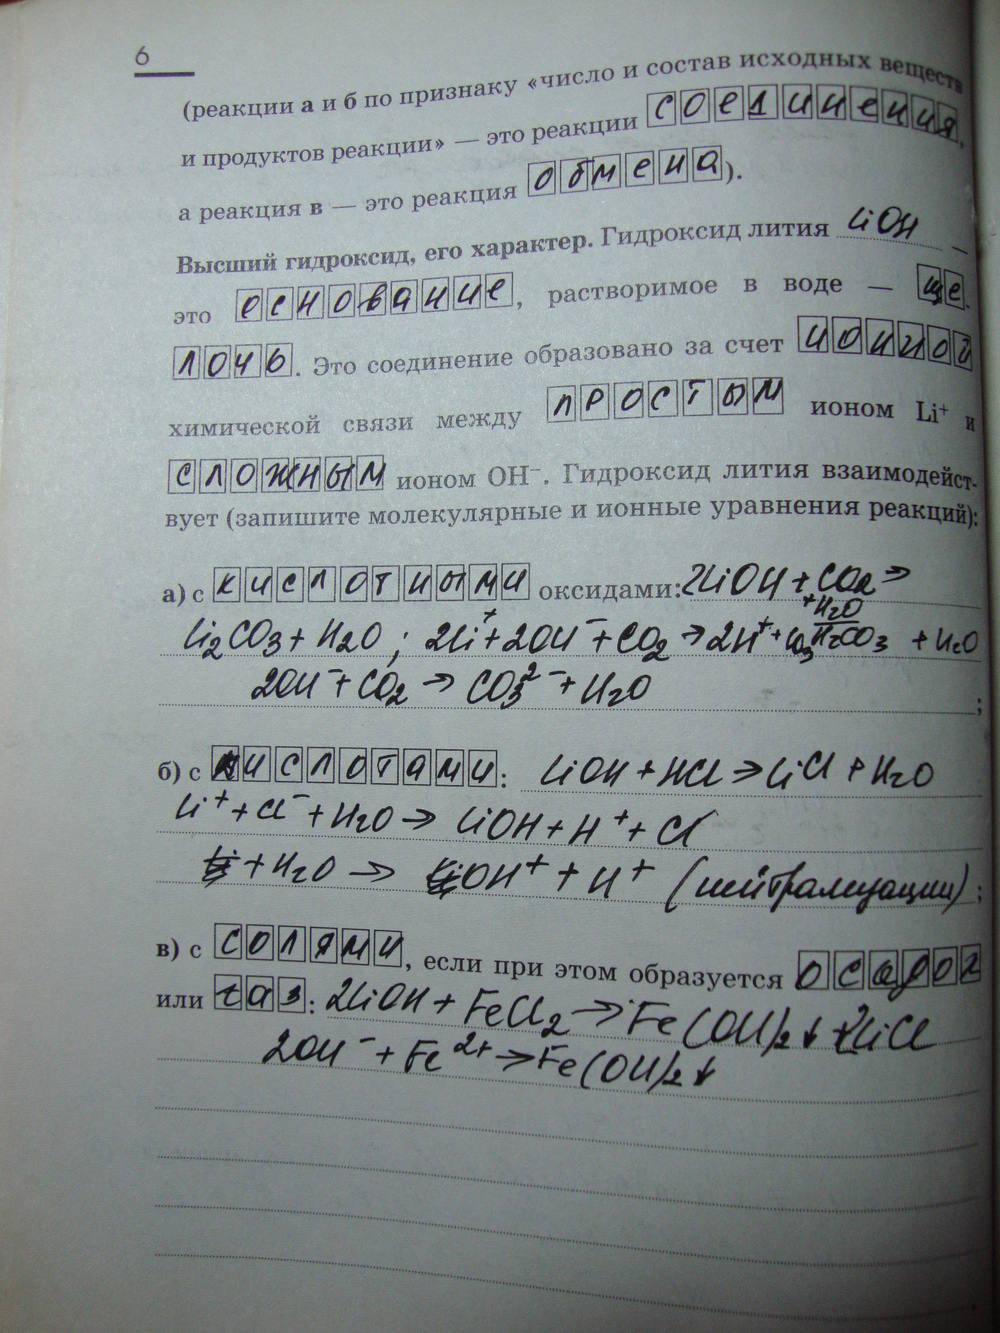 6
(реакции а и б по признаку «число и состав исходных веществ
и продуктов реакции» — это реакции соединения,
а реакция в — это реакция обмена).
Высший гидроксид, его характер. Гидроксид лития LiOH —
это основание, растворимое в воде — ще-
лочь. Это соединение образовано за счет ионной
химической связи между простым ионом Li⁺ и
сложным ионом OH⁻. Гидроксид лития взаимодейст-
вует (запишите молекулярные и ионные уравнения реакций):
а) с кислотными оксидами: 2LiOH + CO2 →
Li2CO3 + H2O ; 2Li⁺ + 2OH⁻ + CO2 → 2H⁺ + + H2O
2OH⁻ + CO2 → CO3²⁻ + H2O ;
б) с кислотами: LiOH + HCl → LiCl + H2O
Li⁺ + Cl⁻ + H2O → LiOH + H⁺ + Cl
+ H2O → OH⁺ + H⁺ (нейтрализации) ;
в) с солями, если при этом образуется осадок
или газ: 2LiOH + FeCl2 → Fe(OH)2↓ + 2LiCl
2OH⁻ + Fe²⁺ → Fe(OH)2↓